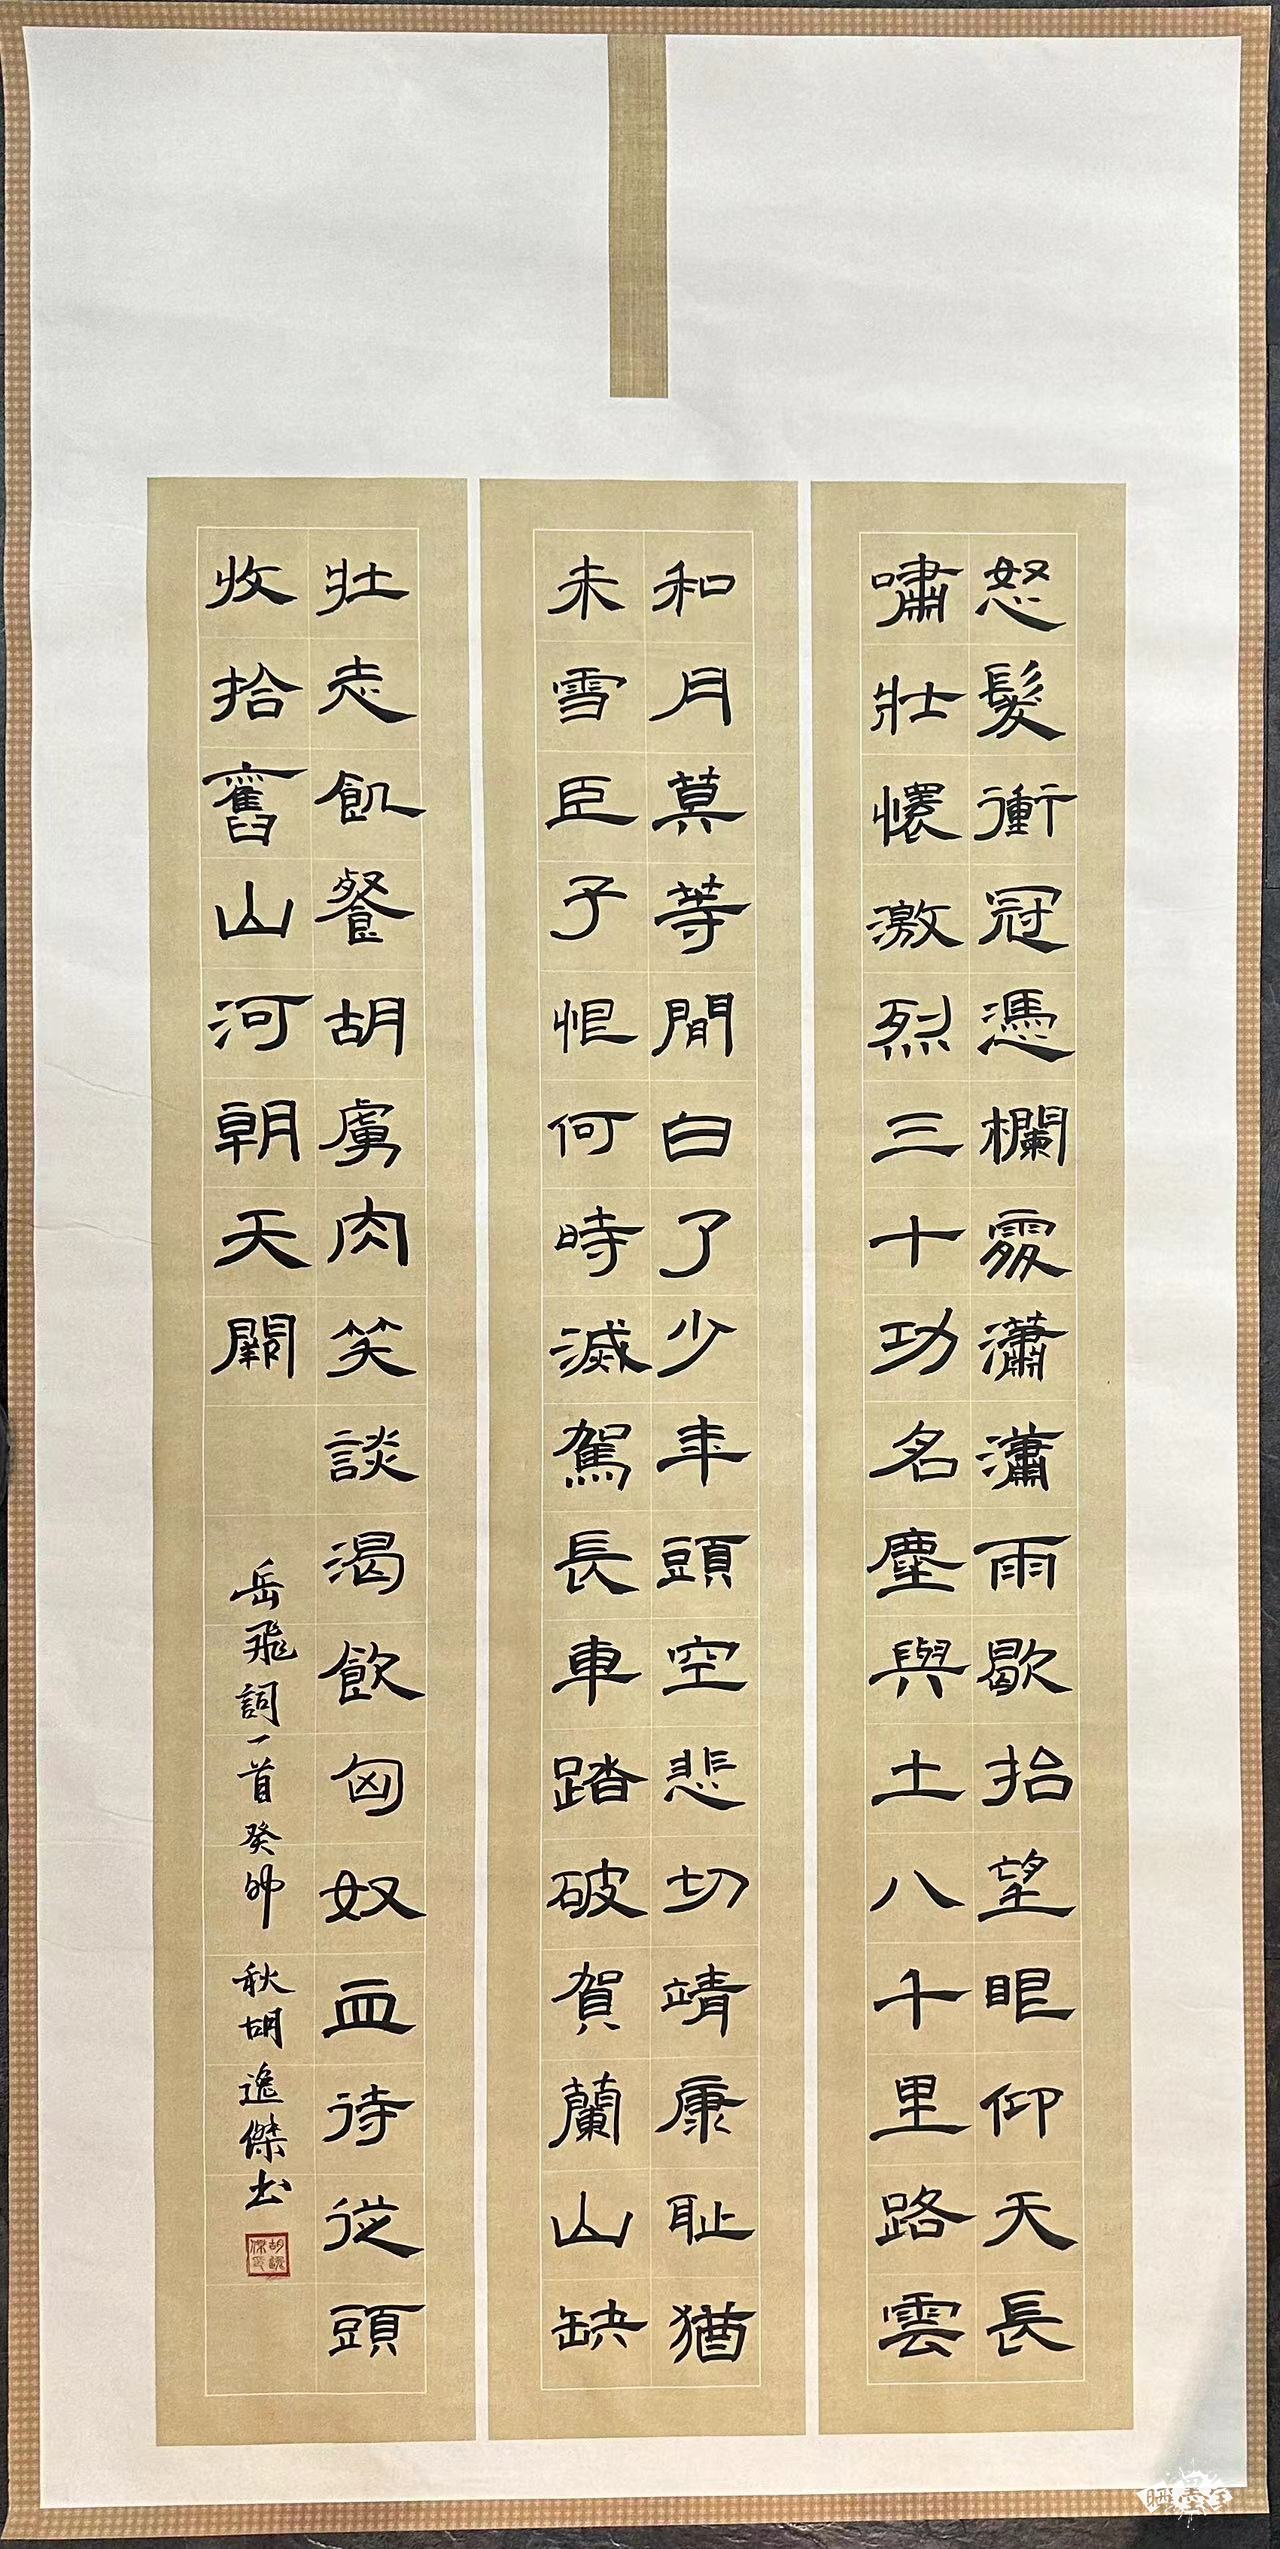 怒髮衝冠憑欄處瀟瀟雨歇抬望眼仰天長
嘯壯懷激烈三十功名塵與土八千里路雲
和月莫等閒白了少年頭空悲切靖康耻猶
未雪臣子恨何時滅駕長車踏破賀蘭山缺
壯志飢餐胡虜肉笑談渴飲匈奴血待從頭
收拾舊山河朝天闕
岳飛詞一首癸卯秋胡逸傑书